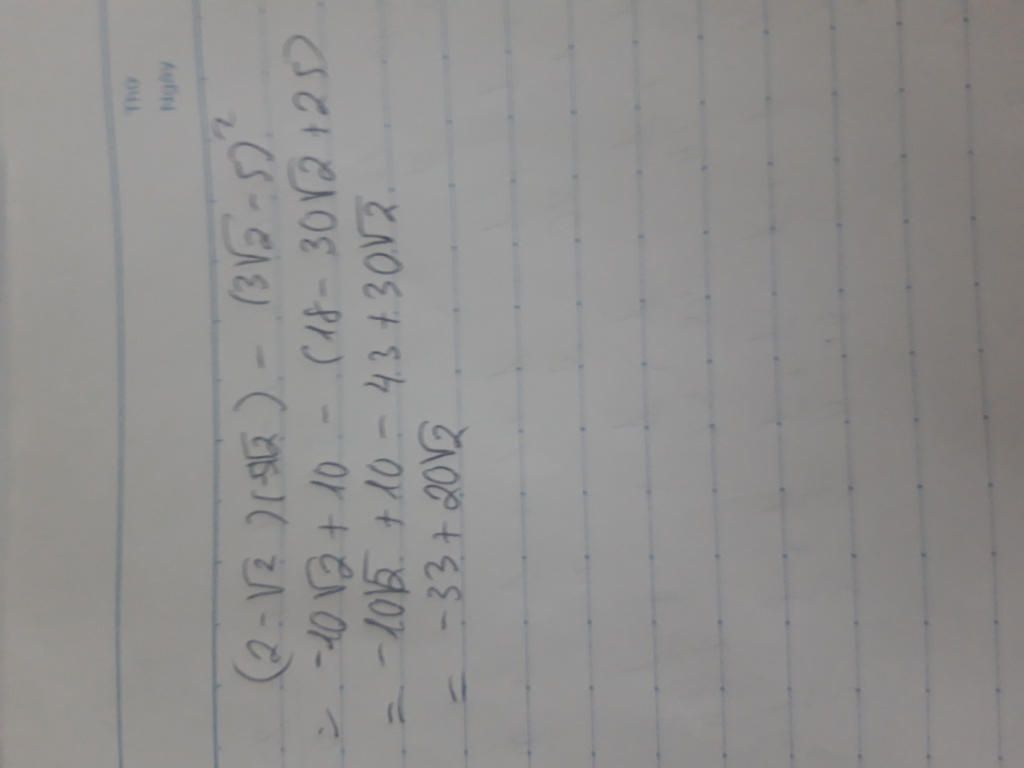 Thứ
Ngày
(2-√2)(-5√2) - (3√2-5)²
= -10√2 + 10 - (18 - 30√2 + 25)
= -10√2 + 10 - 43 + 30√2
= -33 + 20√2